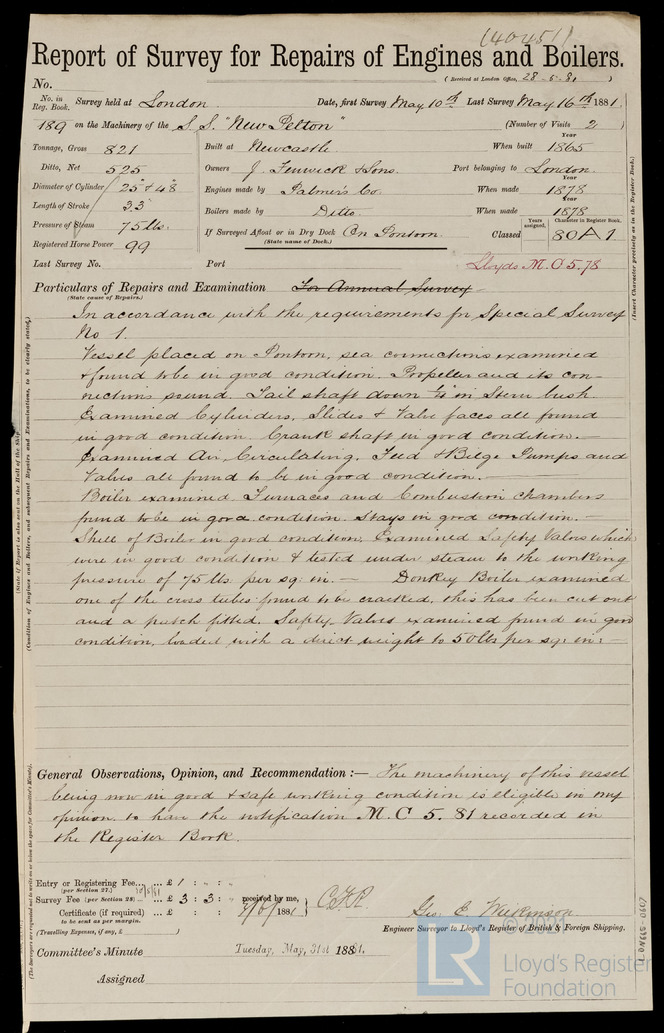 (40451)
Report of Survey for Repairs of Engines and Boilers.
No. (Received at London Office, 28-5-81)
No. in Reg. Book. Survey held at London Date, first Survey May 10th Last Survey May 16th 1881.
189 on the Machinery of the S.S. "New Pelton" (Number of Visits 2)
Tonnage, Gross 821 Built at Newcastle When built Year 1865
Ditto, Net 525 Owners J. Fenwick & Sons. Port belonging to London
Diameter of Cylinder 25" & 48" Engines made by Palmer's Co. When made Year 1878
Length of Stroke 33" Boilers made by Ditto. When made Year 1878
Pressure of Steam 75 lbs. If Surveyed Afloat or in Dry Dock On Pontoon Classed Years assigned. Character in Register Book. 80A1
(State name of Dock.)
Registered Horse Power 99
Last Survey No. Port Lloyds M.C 5,78
Particulars of Repairs and Examination For Annual Survey
(State cause of Repairs.)
In accordance with the requirements for Special Survey
No 1.
Vessel placed on Pontoon, sea connections examined
& found to be in good condition. Propeller and its con-
nections sound. Tail shaft down 1/4" on Stern bush.
Examined Cylinders, Slides & Valve faces all found
in good condition. Crank shaft in good condition.—
Examined Air, Circulating, Feed & Bilge Pumps and
Valves all found to be in good condition.—
Boiler examined Furnaces and Combustion chambers
found to be in good condition. Stays in good condition.—
Shell of Boiler in good condition; Examined Safety Valves which
were in good condition & tested under steam to the working
pressure of 75 lbs. per sq: in.— Donkey Boiler examined
one of the cross tubes found to be cracked, this has been cut out
and a patch fitted. Safety Valves examined found in good
condition, loaded with a direct weight to 50 lbs per sq: in:—
General Observations, Opinion, and Recommendation :— The machinery of this vessel
being now in good & safe working condition is eligible in my
opinion to have the notification M.C 5. 81 recorded in
the Register Book.
Entry or Registering Fee... ... £ 1 : " : "
(per Section 27.)
Survey Fee (per Section 28) ... £ 3 : 3 : " received by me,
Certificate (if required) ... £ : : 188
to be sent as per margin.
(Travelling Expenses, if any, £ )
Geo. E. Wilkinson
Engineer Surveyor to Lloyd's Register of British & Foreign Shipping.
Committee's Minute Tuesday, May, 31st 1881.
Assigned
(State if Report is also sent on the Hull of the Ship.)
(Condition of Engines and Boilers, and subsequent Repairs and Examinations, to be clearly stated.)
(The Surveyors are requested not to write on or below the space for Committee's Minute).
(Insert Character precisely as in the Register Book.)
© 2021
LR
Lloyd's Register
Foundation